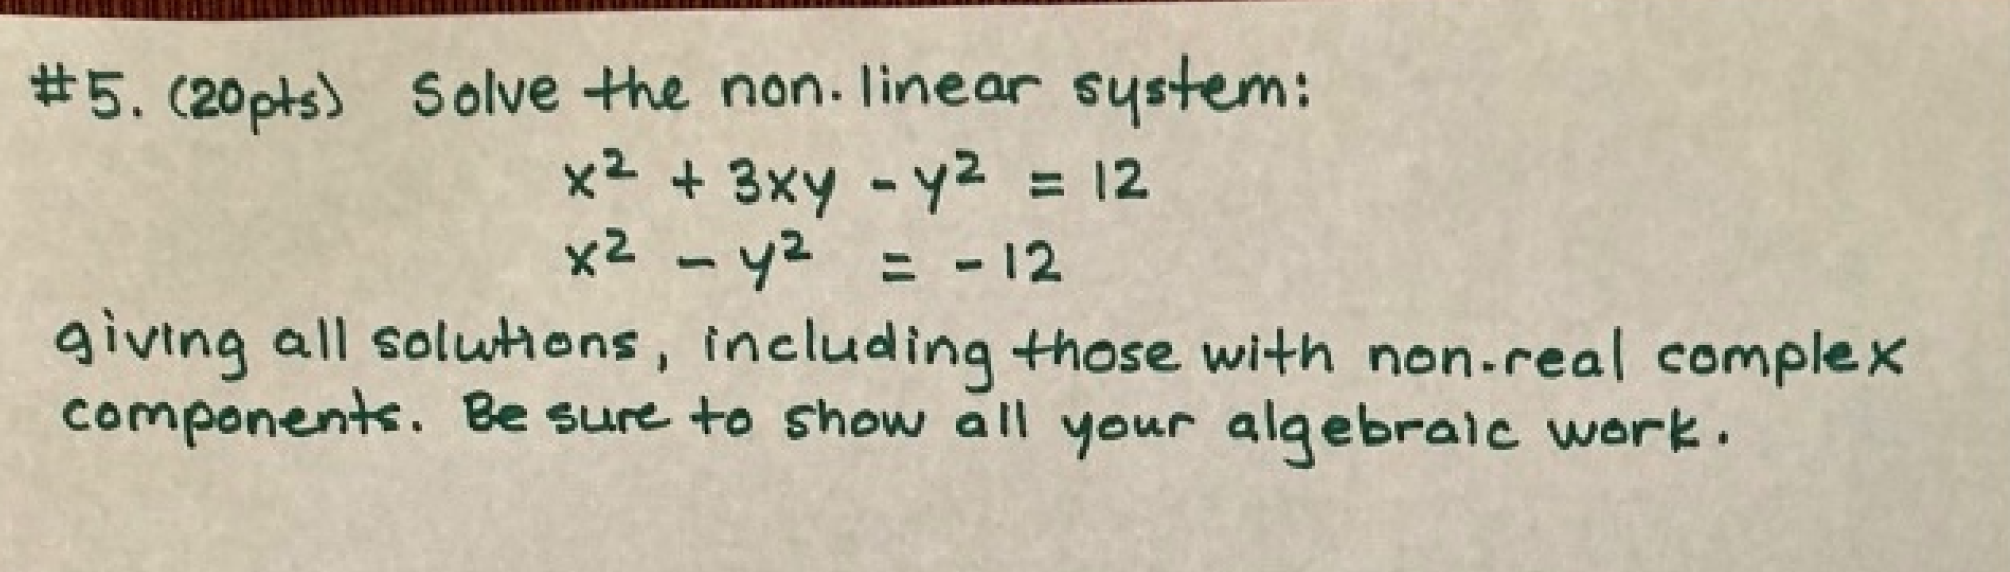 #5. (20pts) Solve the non-linear system:
x² + 3xy - y² = 12
x² - y² = -12
giving all solutions, including those with non-real complex
components. Be sure to show all your algebraic work.